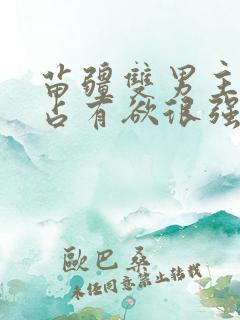 苗疆雙男主
占有欲很强
歐巴桑
未经同意禁止转载